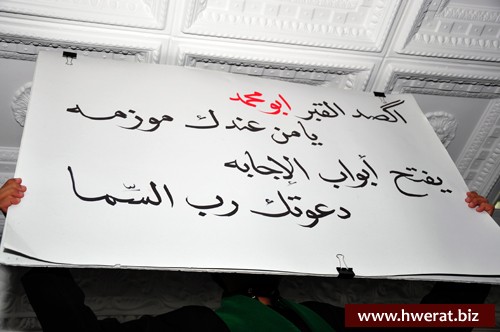 اگصد القبر ابو محمد
يا من عندك موزمه
يفتح أبواب الإجابه
دعوتك رب السّما
www.hwerat.biz